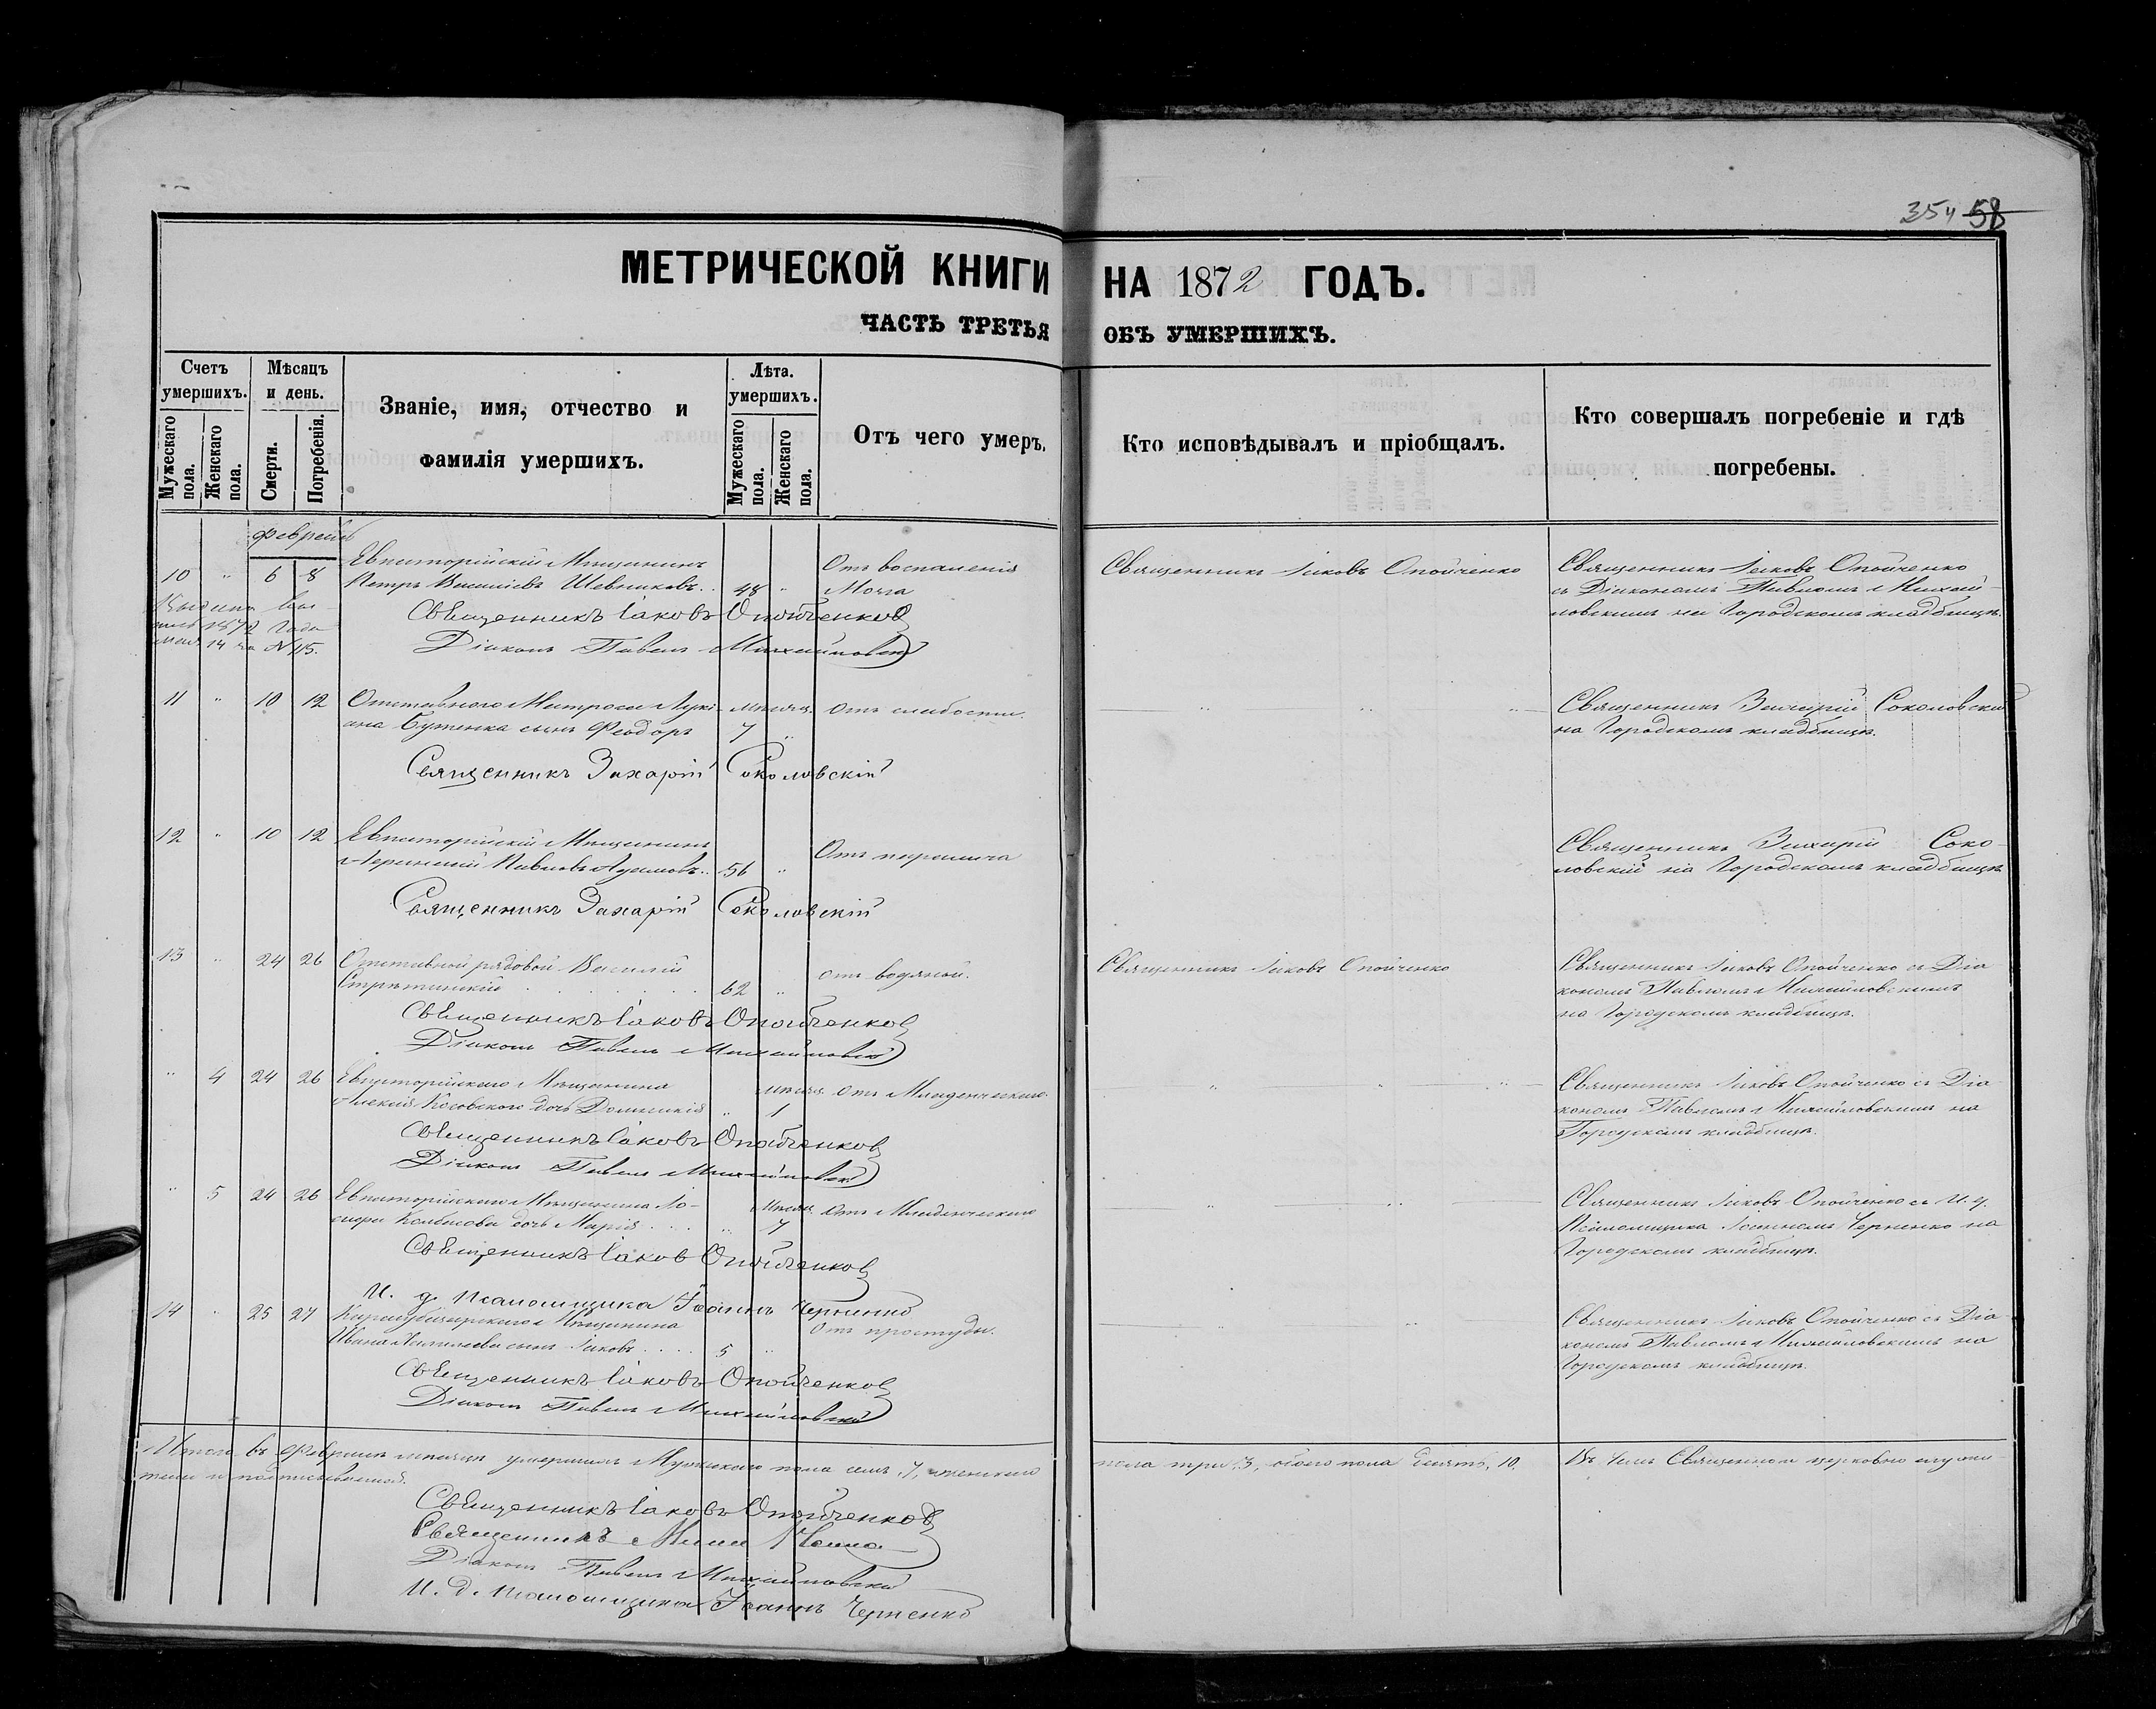 354 58
МЕТРИЧЕСКОЙ КНИГИ НА 1872 ГОДЪ.
ЧАСТЬ ТРЕТЬЯ ОБЪ УМЕРШИХЪ.
Счетъ умершихъ.
Мужескаго пола.
Женскаго пола.
Мѣсяцъ и день.
Смерти.
Погребенія.
Званіе, имя, отчество и
фамилія умершихъ.
Лѣта. умершихъ.
Мужескаго пола.
Женскаго пола.
Отъ чего умеръ.
Кто исповѣдывалъ и пріобщалъ.
Кто совершалъ погребеніе и гдѣ
погребены.
Февраль
10 " 6 8 Евпаторійскій Мѣщанинъ
Петръ Василіевъ Шевляковъ. 48 "
Отъ воспаленія
Мозга
Священникъ Іаковъ Опойченко
Священникъ Іаковъ Опойченко
съ Діакономъ Павломъ Михай-
ловскимъ на Городскомъ кладбищѣ.
1872 года
мая 14 за № 115.
Священникъ Іаковъ Опойченко
Діаконъ Павелъ Михайловскій
11 " 10 12 Отставного Матроса Луки-
ана Бутенка сынъ Феодоръ
мѣсяц.
7 "
Отъ слабости.
Священникъ Захарій Соколовскій
на Городскомъ кладбищѣ.
Священникъ Захарій Соколовскій
12 " 10 12 Евпаторійскій Мѣщанинъ
Павловъ 56 "
Отъ паралича
Священникъ Захарій Соко-
ловскій на Городскомъ кладбищѣ
Священникъ Захарій Соколовскій
13 " 24 26 Отставной рядовой Василій
62 "
отъ водяной.
Священникъ Іаковъ Опойченко
Священникъ Іаковъ Опойченко съ Діа
кономъ Павломъ Михайловскимъ
на Городскомъ кладбищѣ.
Священникъ Іаковъ Опойченко
Діаконъ Павелъ Михайловскій
" 4 24 26 Евпаторійскаго Мѣщанина
Алексія Косовского дочь Домникія "
мѣсяц.
1
отъ Младенческаго.
Священникъ Іаковъ Опойченко съ Діа
кономъ Павломъ Михайловскимъ на
Городскомъ кладбищѣ.
Священникъ Іаковъ Опойченко
Діаконъ Павелъ Михайловскій
" 5 24 26 Евпаторійскаго Мѣщанина
дочь Марія "
мѣсяц.
7
отъ Младенческаго
Священникъ Іаковъ Опойченко съ И. д.
Псаломщика Іоанномъ Черненко на
Городскомъ кладбищѣ.
Священникъ Іаковъ Опойченко
И. д. Псаломщика Іоаннъ Черненко
14 " 25 27 Карасубазарскаго Мѣщанина
Ивана сынъ Іаковъ 5 "
Отъ простуды.
Священникъ Іаковъ Опойченко съ Діа
кономъ Павломъ Михайловскимъ на
Городскомъ кладбищѣ.
Священникъ Іаковъ Опойченко
Діаконъ Павелъ Михайловскій
Итого въ Февралѣ мѣсяцѣ умершихъ Мужескаго пола семь, 7, женскаго
пола три, 3, обоего пола десять, 10. Въ чемъ Священно и церковно служи-
тели и подписываемся.
Священникъ Іаковъ Опойченко
Священникъ
Діаконъ Павелъ Михайловскій
И. д. Псаломщика Іоаннъ Черненко